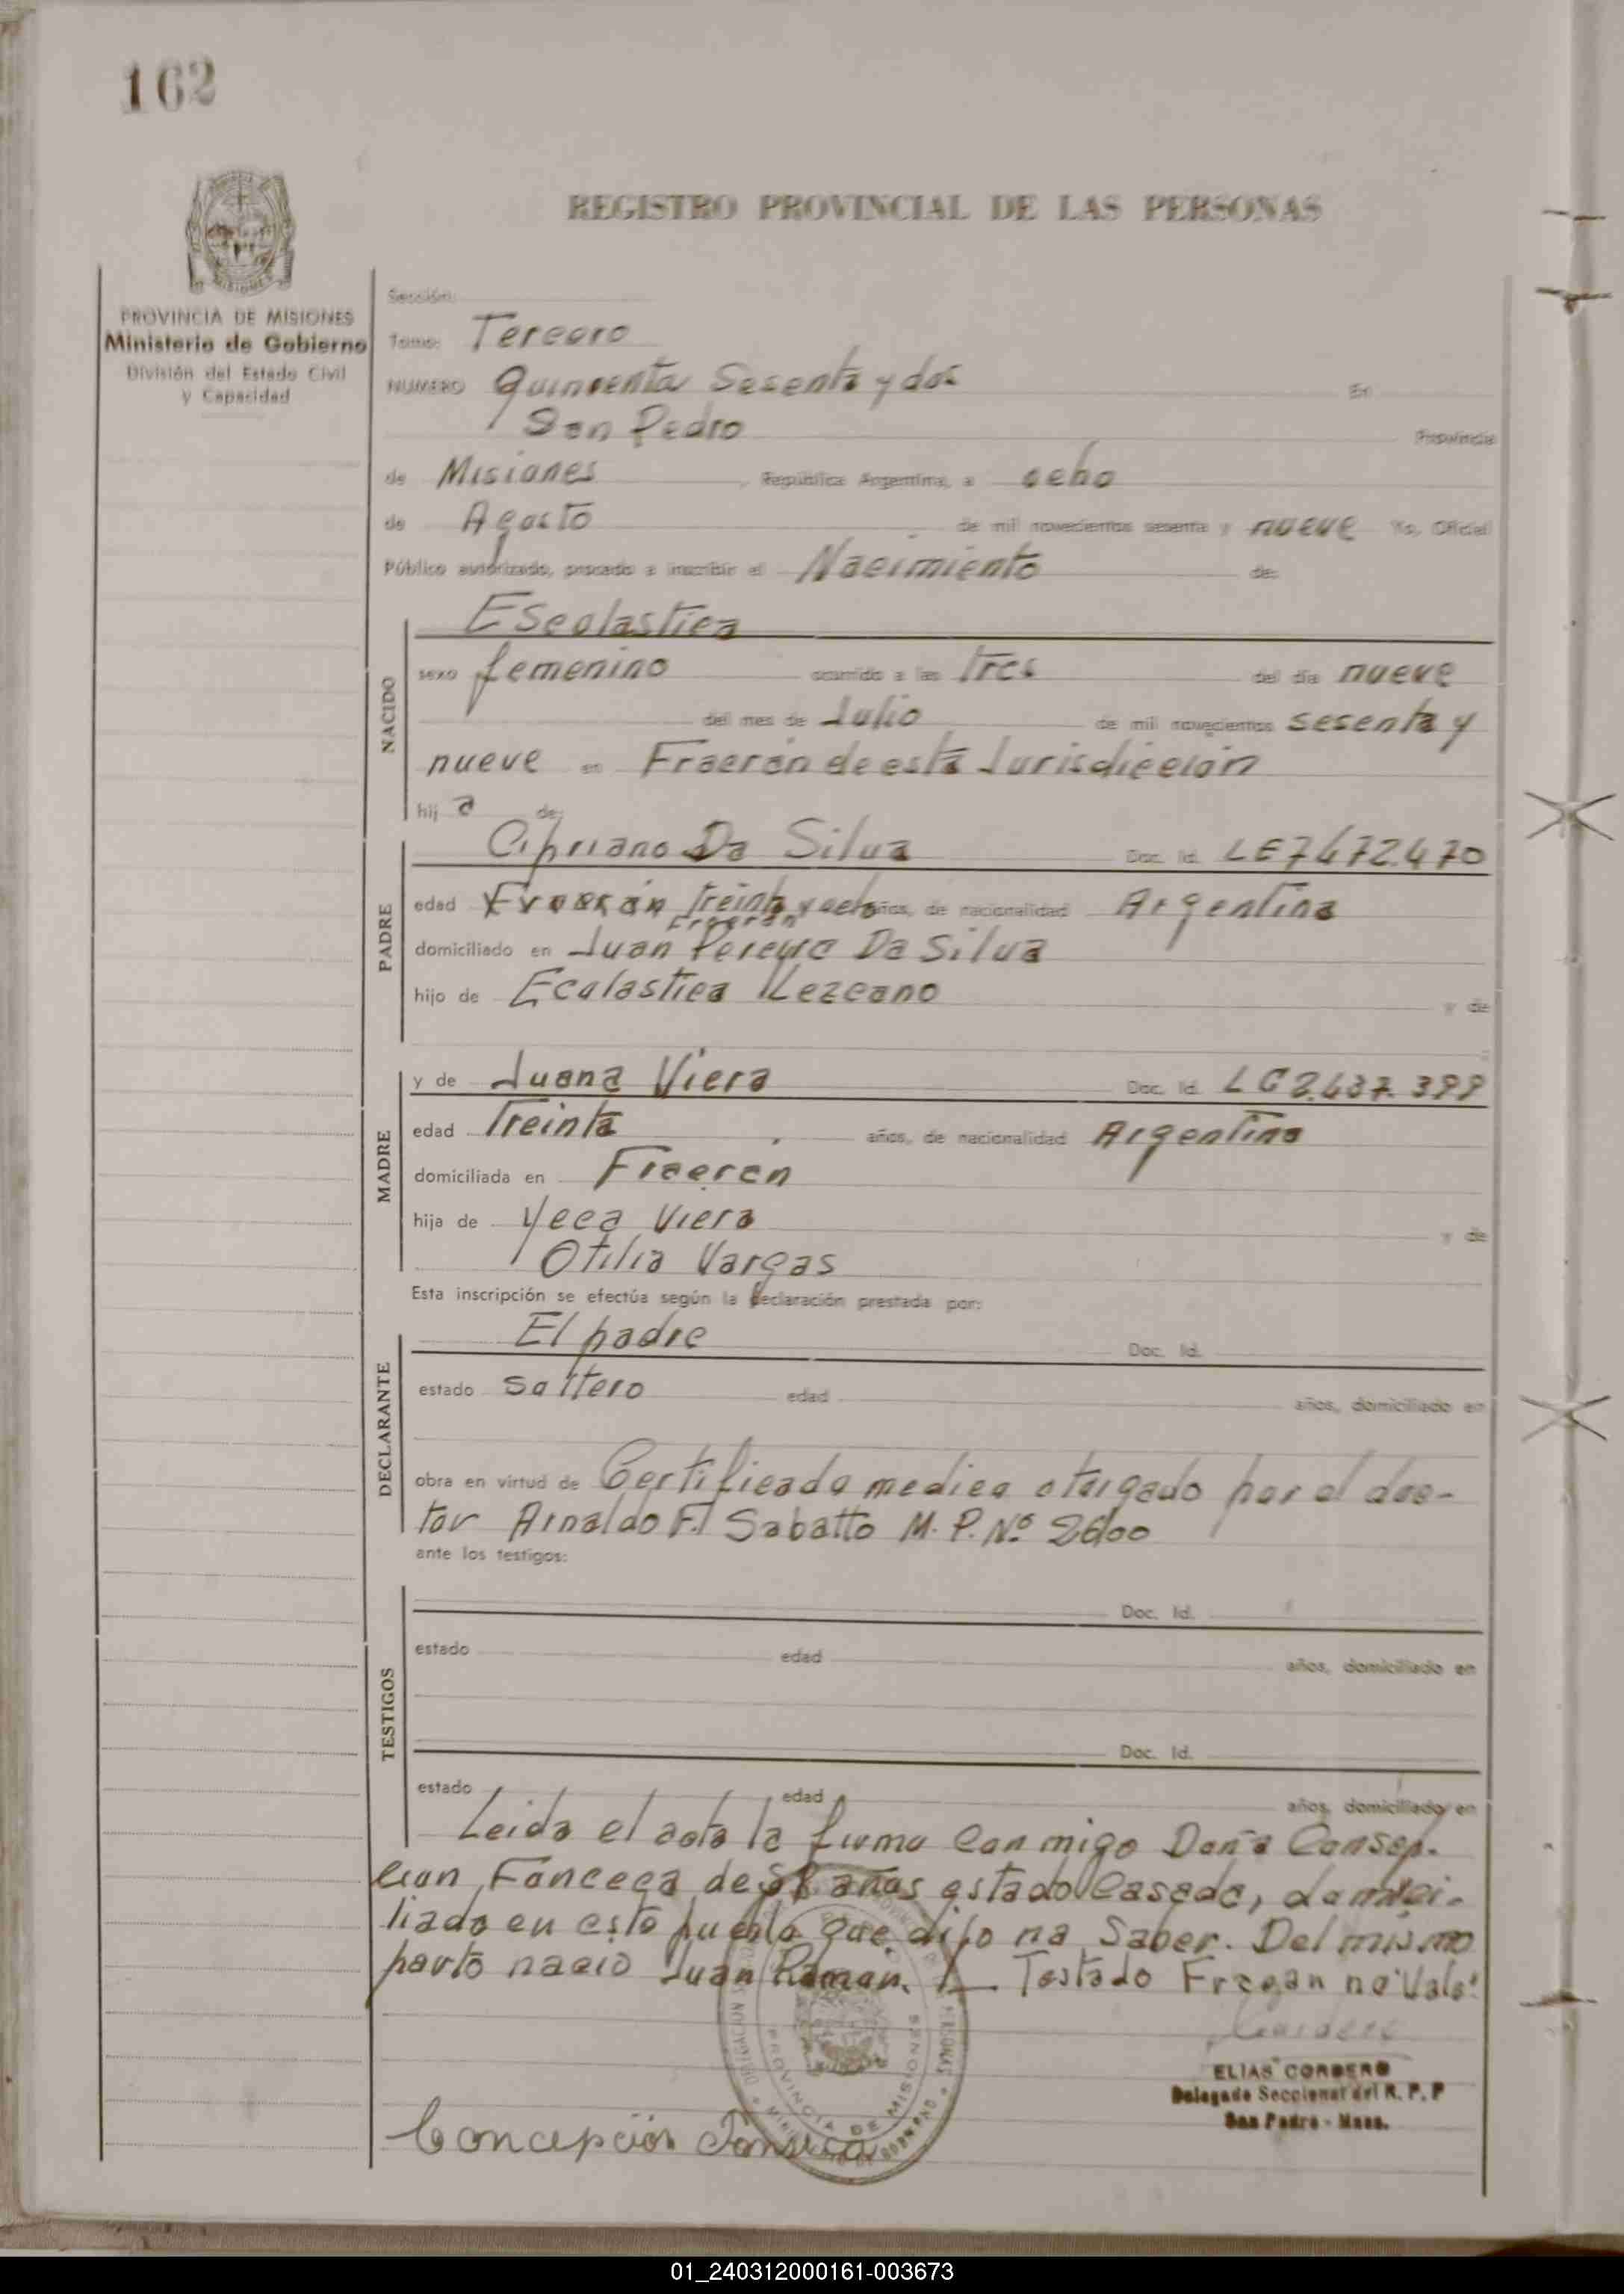 162
REGISTRO PROVINCIAL DE LAS PERSONAS
PROVINCIA DE MISIONES
Ministerio de Gobierno
División del Estado Civil
y Capacidad
Sección:
Tomo: Tercero
NUMERO Quinienta Sesenta y dos En
San Pedro Provincia
de Misiones, República Argentina, a ocho
de Agosto de mil novecientos sesenta y nueve Yo, Oficial
Público autorizado, procedo a inscribir el Nacimiento de:
NACIDO
EScolastica
sexo femenino ocurrido a las Tres del día nueve
del mes de Julio de mil novecientos sesenta y
nueve en Fracrán de esta Jurisdicción
hij a de:
PADRE
Cipriano Da Silva Doc. Id. LE 7472.470
edad Treinta y ocho años, de nacionalidad Argentina
Fracrán
domiciliado en Juan Da Silva
hijo de Ecolastica Lezcano y de
MADRE
y de Juana Viera Doc. Id. LC 2.437.399
edad Treinta años, de nacionalidad Argentina
domiciliada en Fracrán
hija de Yeca Viera y de
Otilia Vargas
Esta inscripción se efectúa según la declaración prestada por:
DECLARANTE
El padre Doc. Id.
estado Soltero edad años, domiciliado en
obra en virtud de Certificado medico otorgado por el doc-
tor Arnaldo F. Sabatto M. P. Nº 2600
ante los testigos:
TESTIGOS
Doc. Id.
estado edad años, domiciliado en
Doc. Id.
estado edad años, domiciliado en
Leida el acta la firma conmigo Doña Consep-
cion Fonceca de años estado Casada, domici-
liada en este pueblo que dijo no Saber. Del mismo
parto nacio Juan Ramon. Testado Fracan no "Vale"
ELIAS CORDERO
Delegado Seccional del R. P. P
San Pedro - Mnes.
PROVINCIA DE MISIONES
MINISTERIO DE GOBIERNO
Concepción Fonseca
01_240312000161-003673